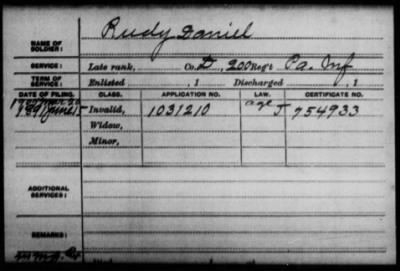 Rudy Daniel
NAME OF SOLDIER:
SERVICE: Late rank, Co. D, 200 Reg't Pa. Inf
TERM OF SERVICE: Enlisted , 1 Discharged , 1
DATE OF FILING. CLASS. APPLICATION NO. LAW. CERTIFICATE NO.
1891 June 15 Invalid, 1031210 age J 754933
Widow,
Minor,
ADDITIONAL SERVICES:
REMARKS: